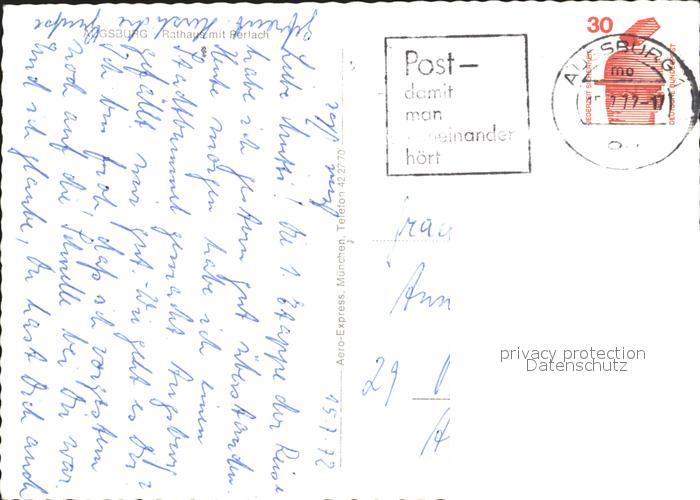 AUGSBURG Rathaus mit Perlach
15.7.72
Liebe Mutti! Die 1. Etappe der Reise
habe ich gestern gut überstanden.
Heute morgen habe ich einen
Stadtbummel gemacht. Augsburg
gefällt mir gut. Wie geht es Dir?
Ich bin froh, daß ich vorgestern
noch auf die Schnelle bei Dir war.
Und ich glaube, Du hast Dich auch
gefreut. Herzliche Grüße
Aero-Express, München, Telefon 42 27 70
Post—
damit
man
einander
hört
AUGSBURG
mo
30
JEDERZEIT SICHERHEIT
DEUTSCHE BUNDESPOST
Frau
Ann
29
privacy protection
Datenschutz